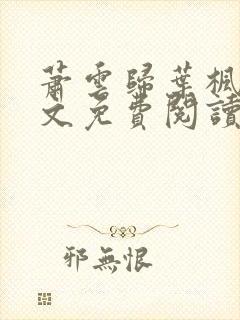 蕭雲歸葉楓
文免費閱讀
邪無恨